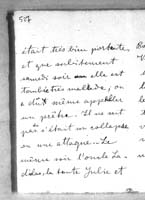 507
était très bien portante,
et que subitement
samedi soir elle est
tombée très malade, on
a dût même appeler
un prêtre. Il ne sait
pas si c'était un collapse
ou une attaque. Le
même soir l'oncle La-
dislas, la tante Julie et